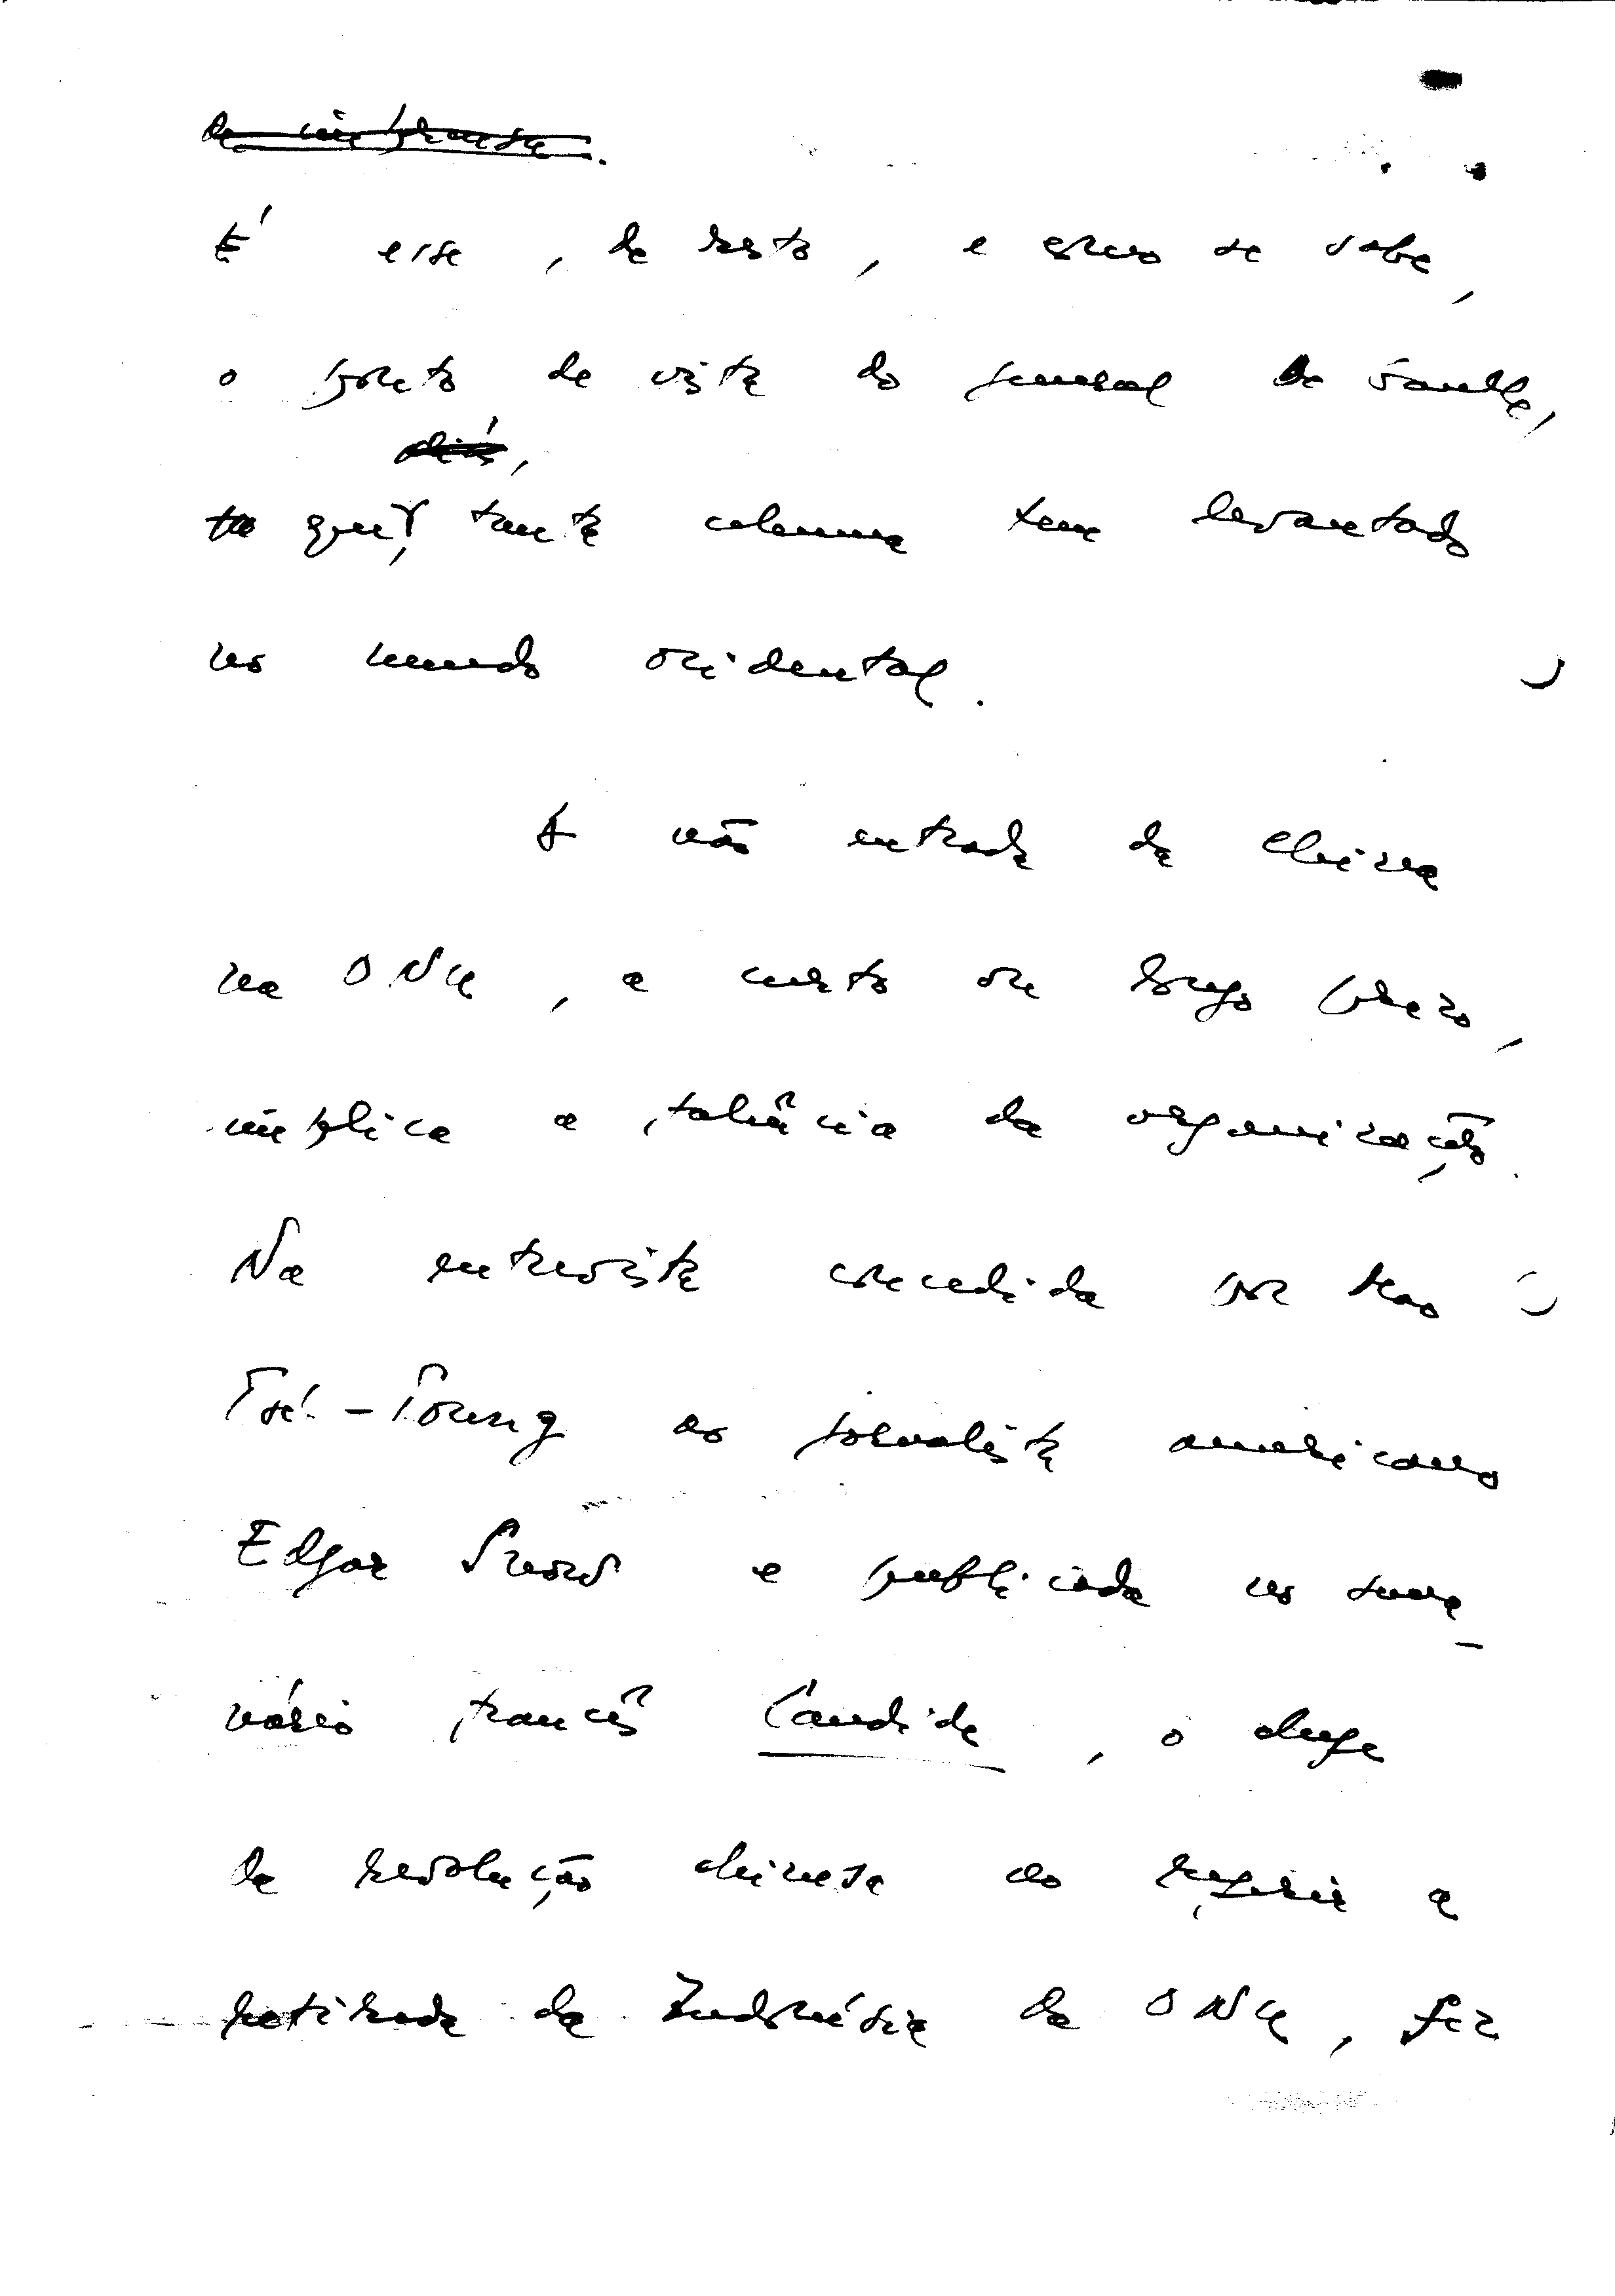 da imprensa.
É esse, de resto, e como se sabe,
o ponto de vista do general De Gaulle,
aliás,
que, tanta celeuma tem levantado
no mundo ocidental.
A não entrada da China
na ONU, a curto ou longo prazo,
implica a falência da organização.
Na entrevista concedida por Mao
Tsé-Toung ao jornalista americano
Edgar Snow e publicada no sema-
nário francês Candide, o chefe
da revolução chinesa ao referir a
retirada da Indonésia da ONU, fez